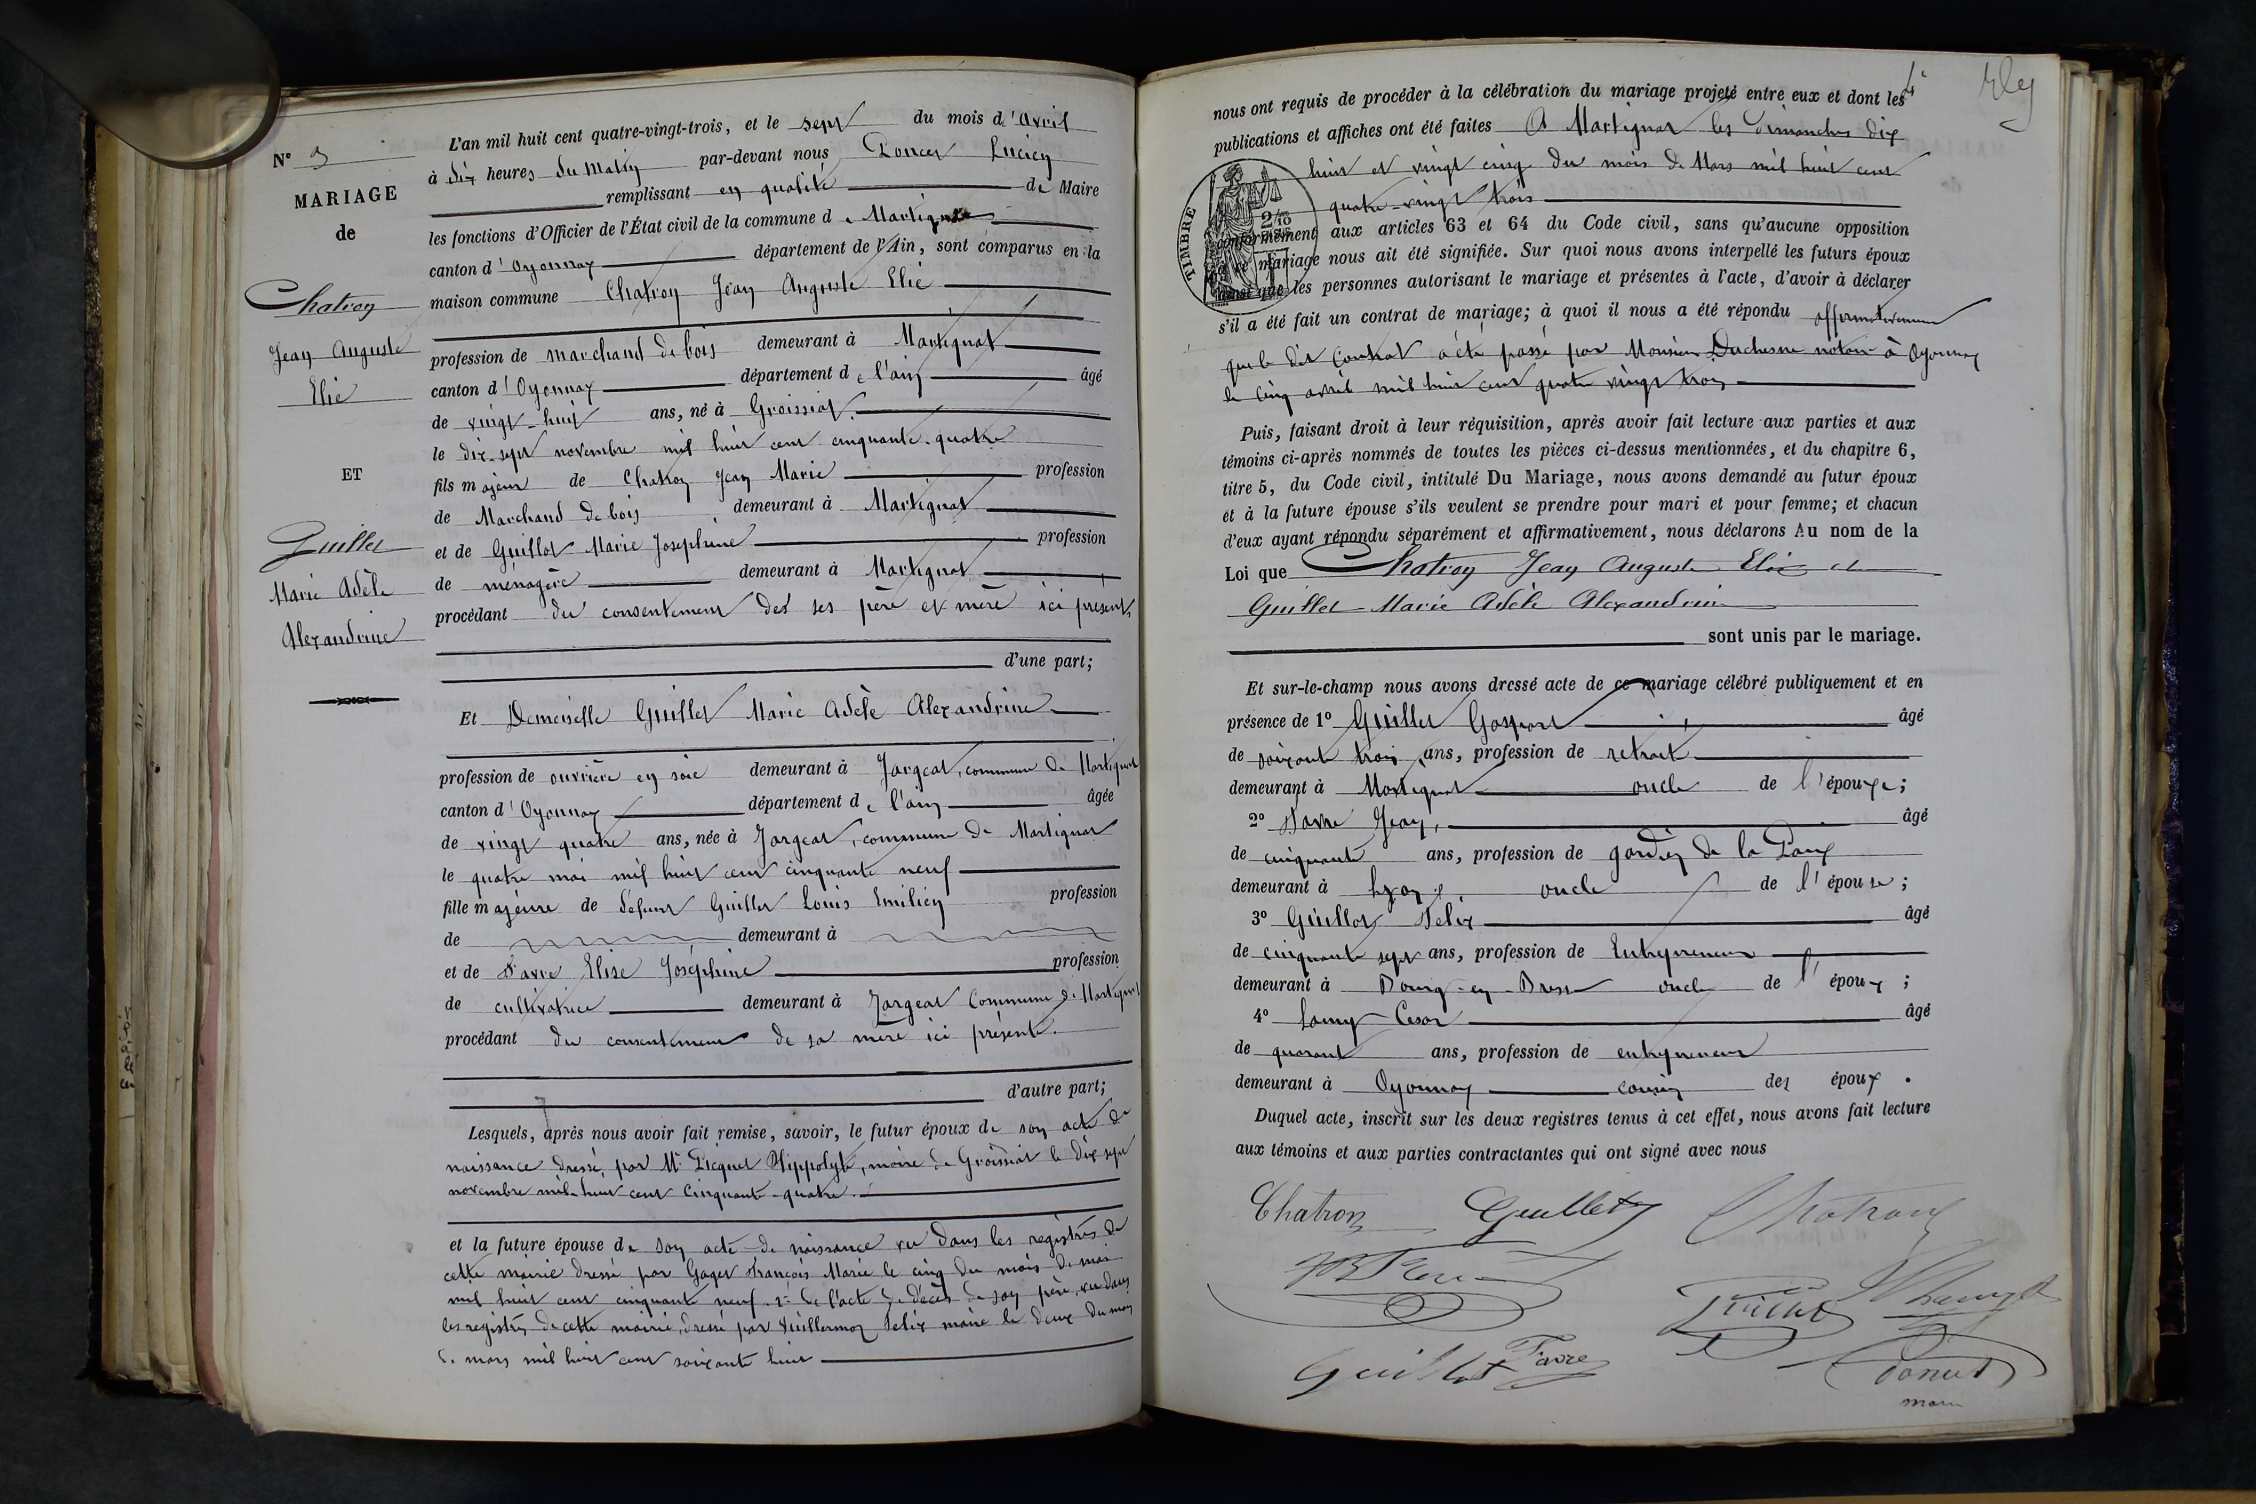 N° 3
MARIAGE
de
Chatron
Jean Auguste
Elie
ET
Guillet
Marie Adèle
Alexandrine
L'an mil huit cent quatre-vingt-trois, et le sept du mois d'avril
à dix heures du matin par-devant nous Poncet Lucien
remplissant en qualité de Maire
les fonctions d'Officier de l'État civil de la commune de Martignat
canton d'Oyonnax département de l'Ain, sont comparus en la
maison commune Chatron Jean Auguste Elie
profession de marchand de bois demeurant à Martignat
canton d'Oyonnax département de l'ain âgé
de vingt-huit ans, né à Groissiat
le dix-sept novembre mil huit cent cinquante-quatre
fils majeur de Chatron Jean Marie profession
de Marchand de bois demeurant à Martignat
et de Guillot Marie Joséphine profession
de ménagère demeurant à Martignat
procédant du consentement des ses père et mère ici présents
d'une part;
Et Demoiselle Guillet Marie Adèle Alexandrine
profession de ouvrière en soie demeurant à Jargeat, commune de Martignat
canton d'Oyonnax département de l'ain âgée
de vingt quatre ans, née à Jargeat, commune de Martignat
le quatre mai mil huit cent cinquante neuf
fille majeure de défunt Guillet Louis Emilien profession
de demeurant à
et de Favre Elise Joséphine profession
de cultivatrice demeurant à Jargeat Commune de Martignat
procédant du consentement de sa mère ici présente.
d'autre part;
Lesquels, après nous avoir fait remise, savoir, le futur époux de son acte de
naissance dressé par Mr Picquet Hippolyte, maire de Groissiat le dix sept
novembre mil-huit cent cinquante-quatre.
et la future épouse de son acte de naissance vu dans les registres de
cette mairie dressé par Gaget François Marie le cinq du mois de mai
mil huit cent cinquante neuf. 2° de l'acte de décès de son père, vu dans
les registres de cette mairie, dressé par Vuillermoz Félix maire le deux du mois
de mars mil huit cent soixante huit
4
nous ont requis de procéder à la célébration du mariage projeté entre eux et dont les
publications et affiches ont été faites A Martignat les dimanches dix
huit et vingt cinq du mois de Mars mil huit cent
quatre-vingt trois
TIMBRE
conformément aux articles 63 et 64 du Code civil, sans qu'aucune opposition
à ce mariage nous ait été signifiée. Sur quoi nous avons interpellé les futurs époux
ainsi que les personnes autorisant le mariage et présentes à l'acte, d'avoir à déclarer
s'il a été fait un contrat de mariage; à quoi il nous a été répondu affirmativement
que le dit Contrat a été passé par Monsieur Duchesne notaire à Oyonnax
le cinq avril mil huit cent quatre vingt trois
Puis, faisant droit à leur réquisition, après avoir fait lecture aux parties et aux
témoins ci-après nommés de toutes les pièces ci-dessus mentionnées, et du chapitre 6,
titre 5, du Code civil, intitulé Du Mariage, nous avons demandé au futur époux
et à la future épouse s'ils veulent se prendre pour mari et pour femme; et chacun
d'eux ayant répondu séparément et affirmativement, nous déclarons Au nom de la
Loi que Chatron Jean Auguste Elie et
Guillet Marie Adèle Alexandrine
sont unis par le mariage.
Et sur-le-champ nous avons dressé acte de ce mariage célébré publiquement et en
présence de 1° Guillet Gaspard âgé
de soixante trois ans, profession de retraité
demeurant à Martignat oncle de l'épouse;
2° Favre Jean, âgé
de cinquante ans, profession de gardien de la Paix
demeurant à Lyon oncle de l'épouse;
3° Guillot Félix âgé
de cinquante sept ans, profession de Entrepreneur
demeurant à Bourg-en-Bresse oncle de l'époux;
4° Lamy Cesar âgé
de quarante ans, profession de entrepreneur
demeurant à Oyonnax cousin des époux.
Duquel acte, inscrit sur les deux registres tenus à cet effet, nous avons fait lecture
aux témoins et aux parties contractantes qui ont signé avec nous
Chatron Guillet Chatron
Guillot Favre
Poncet
maire